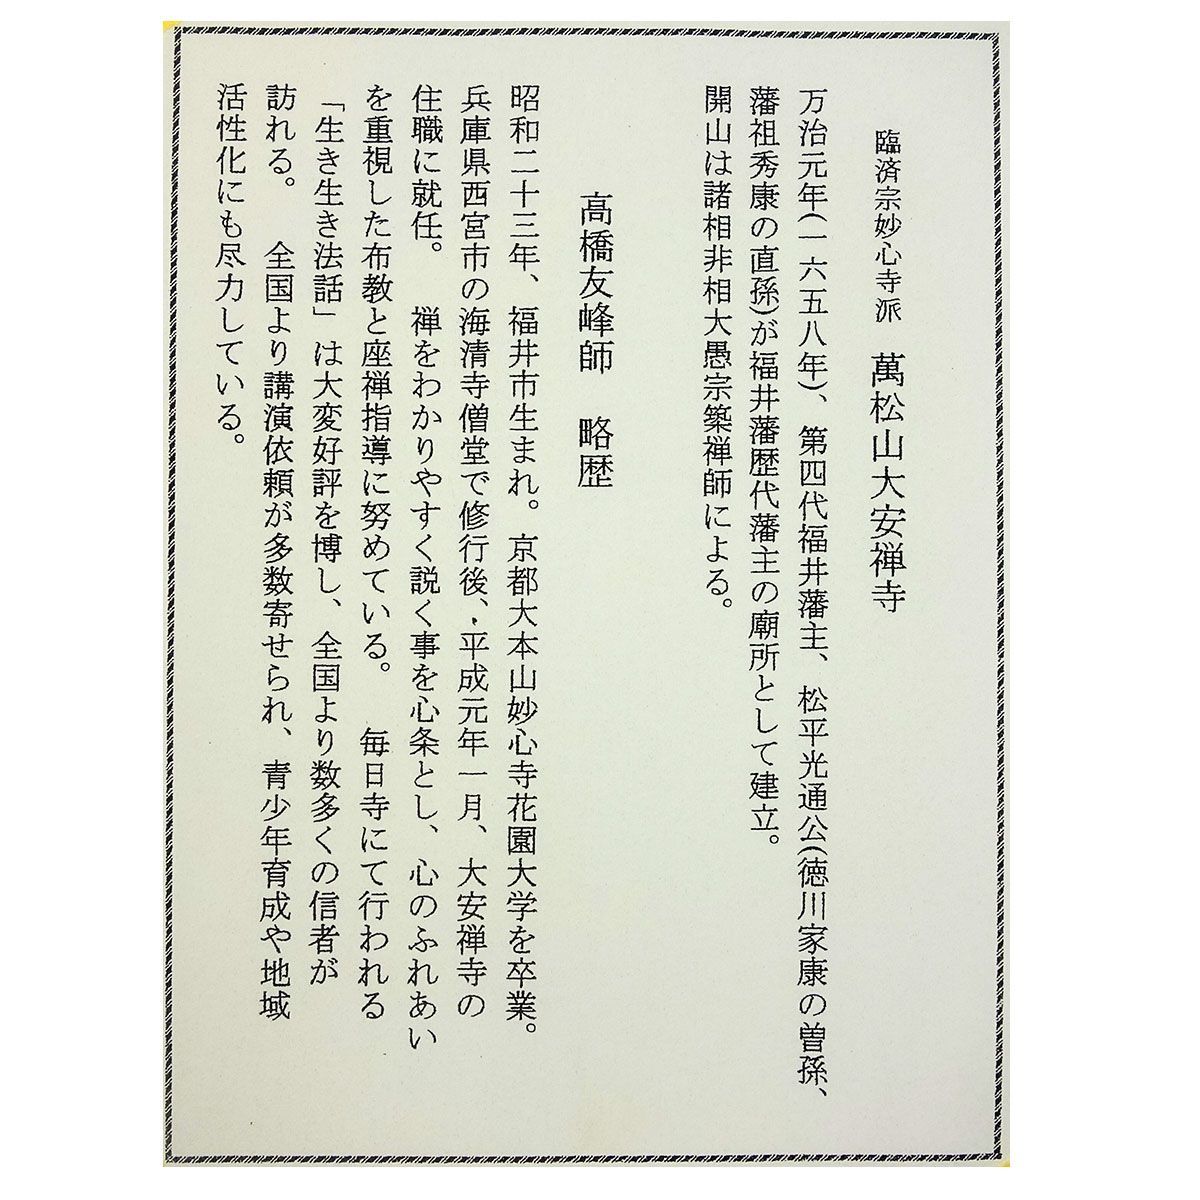 臨済宗妙心寺派　萬松山大安禅寺
万治元年(一六五八年)、第四代福井藩主、松平光通公(徳川家康の曽孫、
藩祖秀康の直孫)が福井藩歴代藩主の廟所として建立。
開山は諸相非相大愚宗築禅師による。
高橋友峰師　略歴
昭和二十三年、福井市生まれ。京都大本山妙心寺花園大学を卒業。
兵庫県西宮市の海清寺僧堂で修行後、・平成元年一月、大安禅寺の
住職に就任。　禅をわかりやすく説く事を心条とし、心のふれあい
を重視した布教と座禅指導に努めている。　毎日寺にて行われる
「生き生き法話」は大変好評を博し、全国より数多くの信者が
訪れる。　全国より講演依頼が多数寄せられ、青少年育成や地域
活性化にも尽力している。